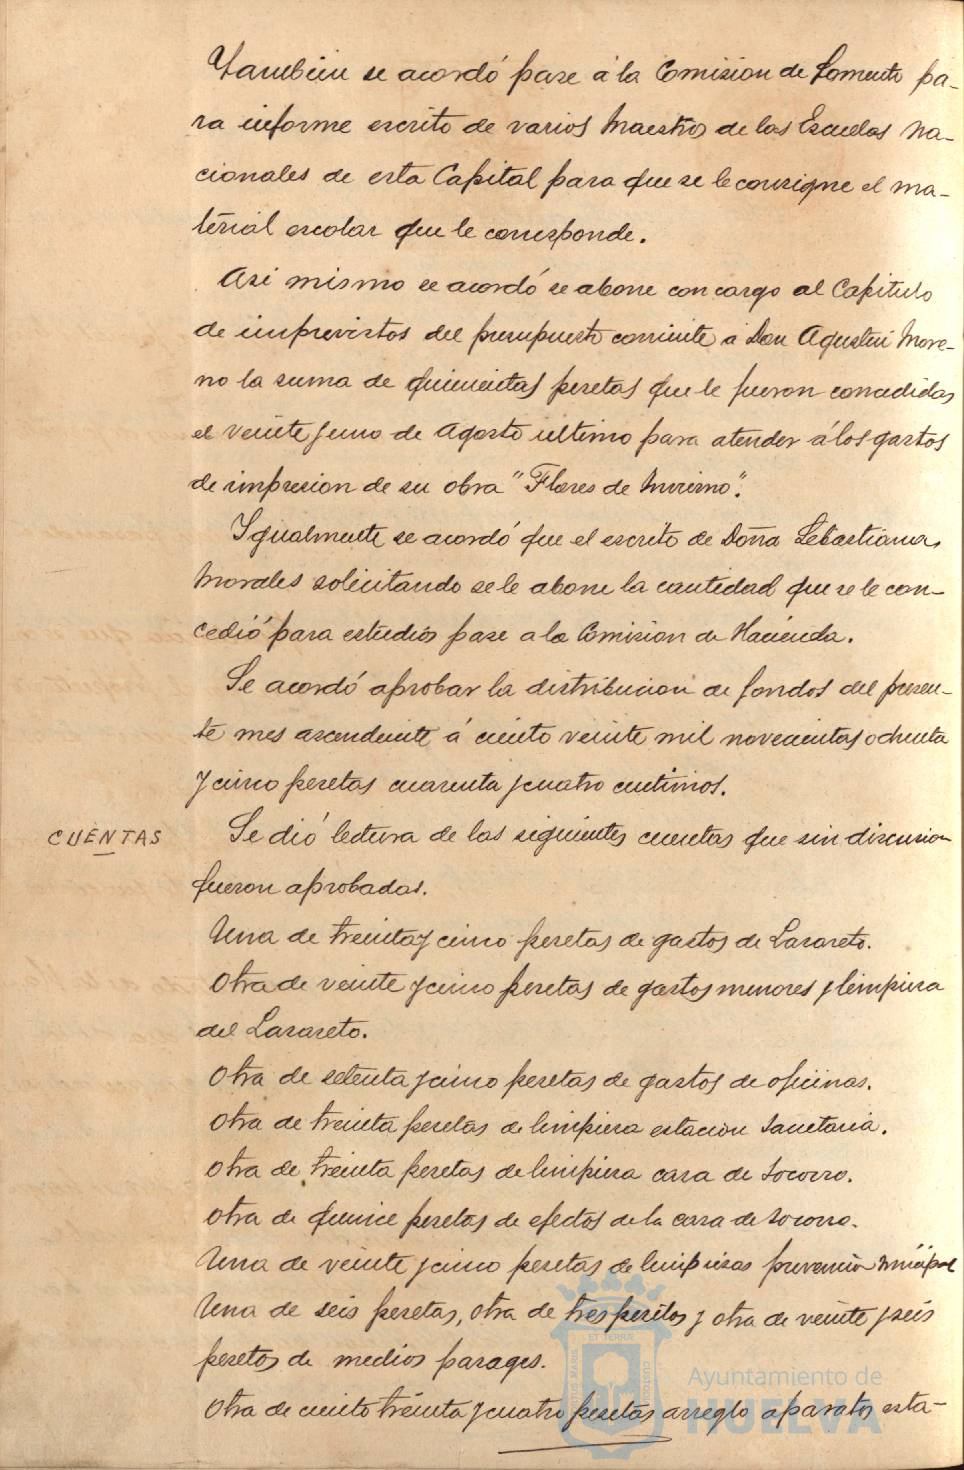 Tambien se acordó pase á la Comision de Fomento pa-
ra informe escrito de varios Maestros de las Escuelas Na-
cionales de esta Capital para que se le consigne el ma-
terial escolar que le corresponde.
Asi mismo se acordó se abone con cargo al Capitulo
de imprevistos del presupuesto corriente á Don Agustin More-
no la suma de quinientas pesetas que le fueron concedidas
el veinte y uno de Agosto ultimo para atender á los gastos
de impresion de su obra "Flores de Invierno".
Igualmente se acordó que el escrito de Doña Sebastiana
Morales solicitando se le abone la cantidad que se le con-
cedió para estudios pase a la Comision de Hacienda.
Se acordó aprobar la distribucion de fondos del presen-
te mes ascendente á ciento veinte mil novecientas ochenta
y cinco pesetas cuarenta y cuatro centimos.
CUENTAS
Se dió lectura de las siguientes cuentas que sin discusion
fueron aprobadas.
Una de treinta y cinco pesetas de gastos de Lazareto.
Otra de veinte y cinco pesetas de gastos menores y limpieza
del Lazareto.
Otra de setenta y cinco pesetas de gastos de oficinas.
Otra de treinta pesetas de limpieza estacion Sanitaria.
Otra de treinta pesetas de limpieza casa de Socorro.
Otra de quince pesetas de efectos de la casa de Socorro.
Una de veinte y cinco pesetas de limpiezas prevencion Municipal
Una de seis pesetas, otra de tres pesetas y otra de veinte y seis
pesetas de medios parages.
Otra de ciento treinta y cuatro pesetas arreglo aparatos esta-
Ayuntamiento de
HUELVA